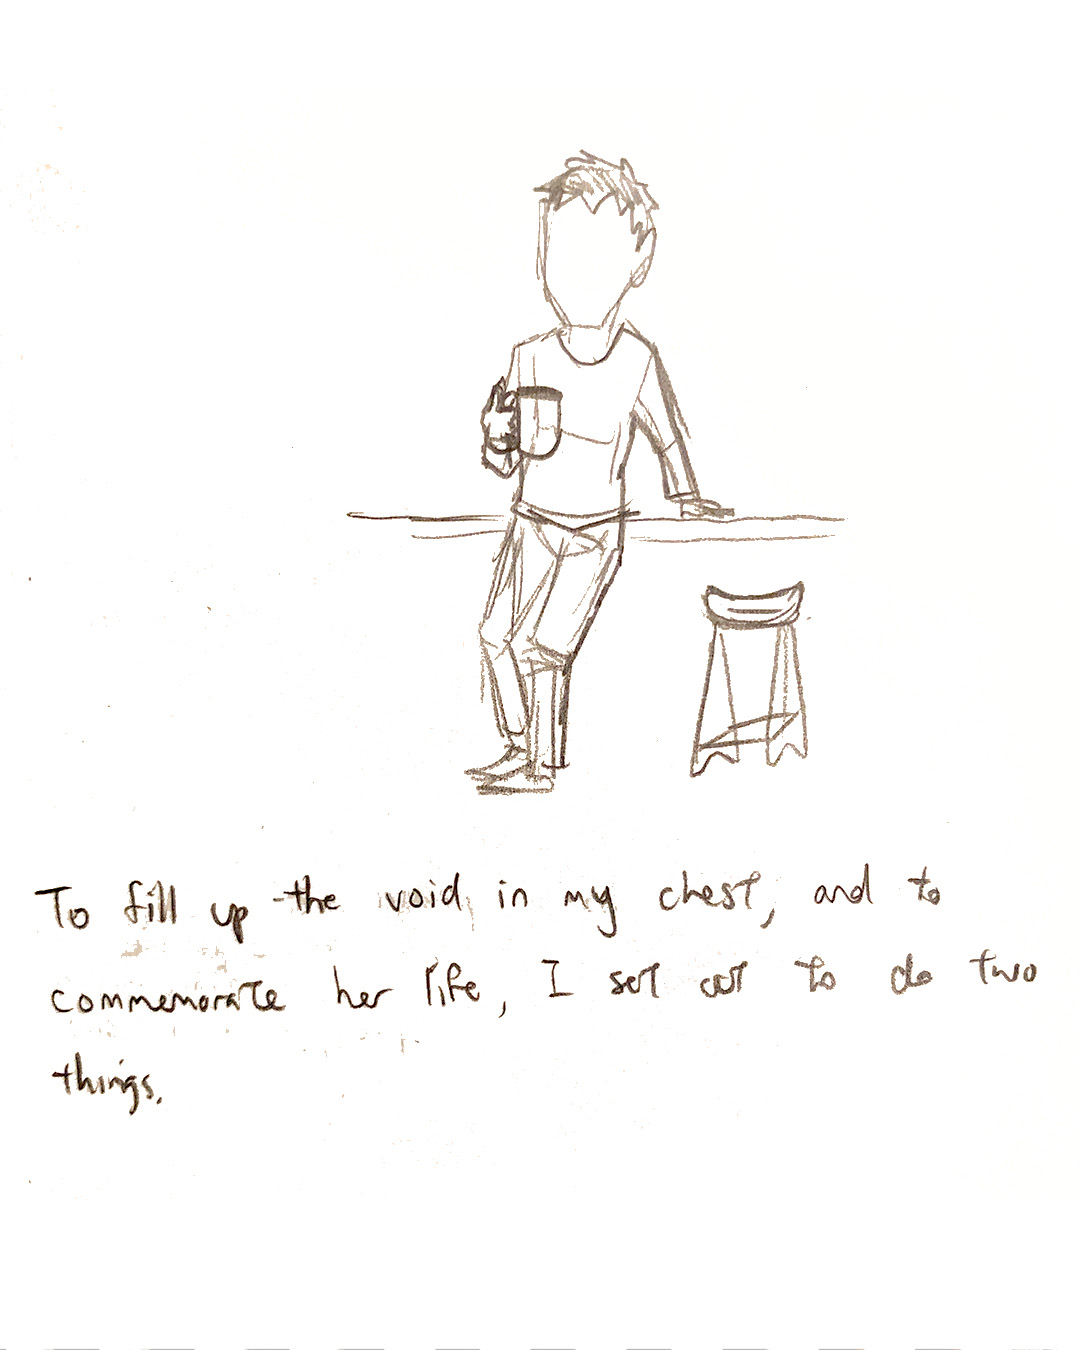 To fill up the void in my chest, and to
commemorate her life, I set out to do two
things.